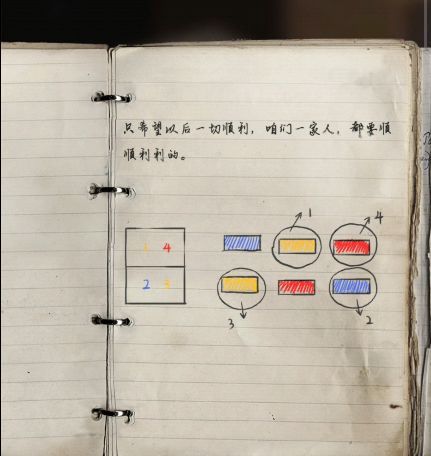 只希望以后一切顺利，咱们一家人，都要顺
顺利利的。
1 4
1 4
2 3
3 2